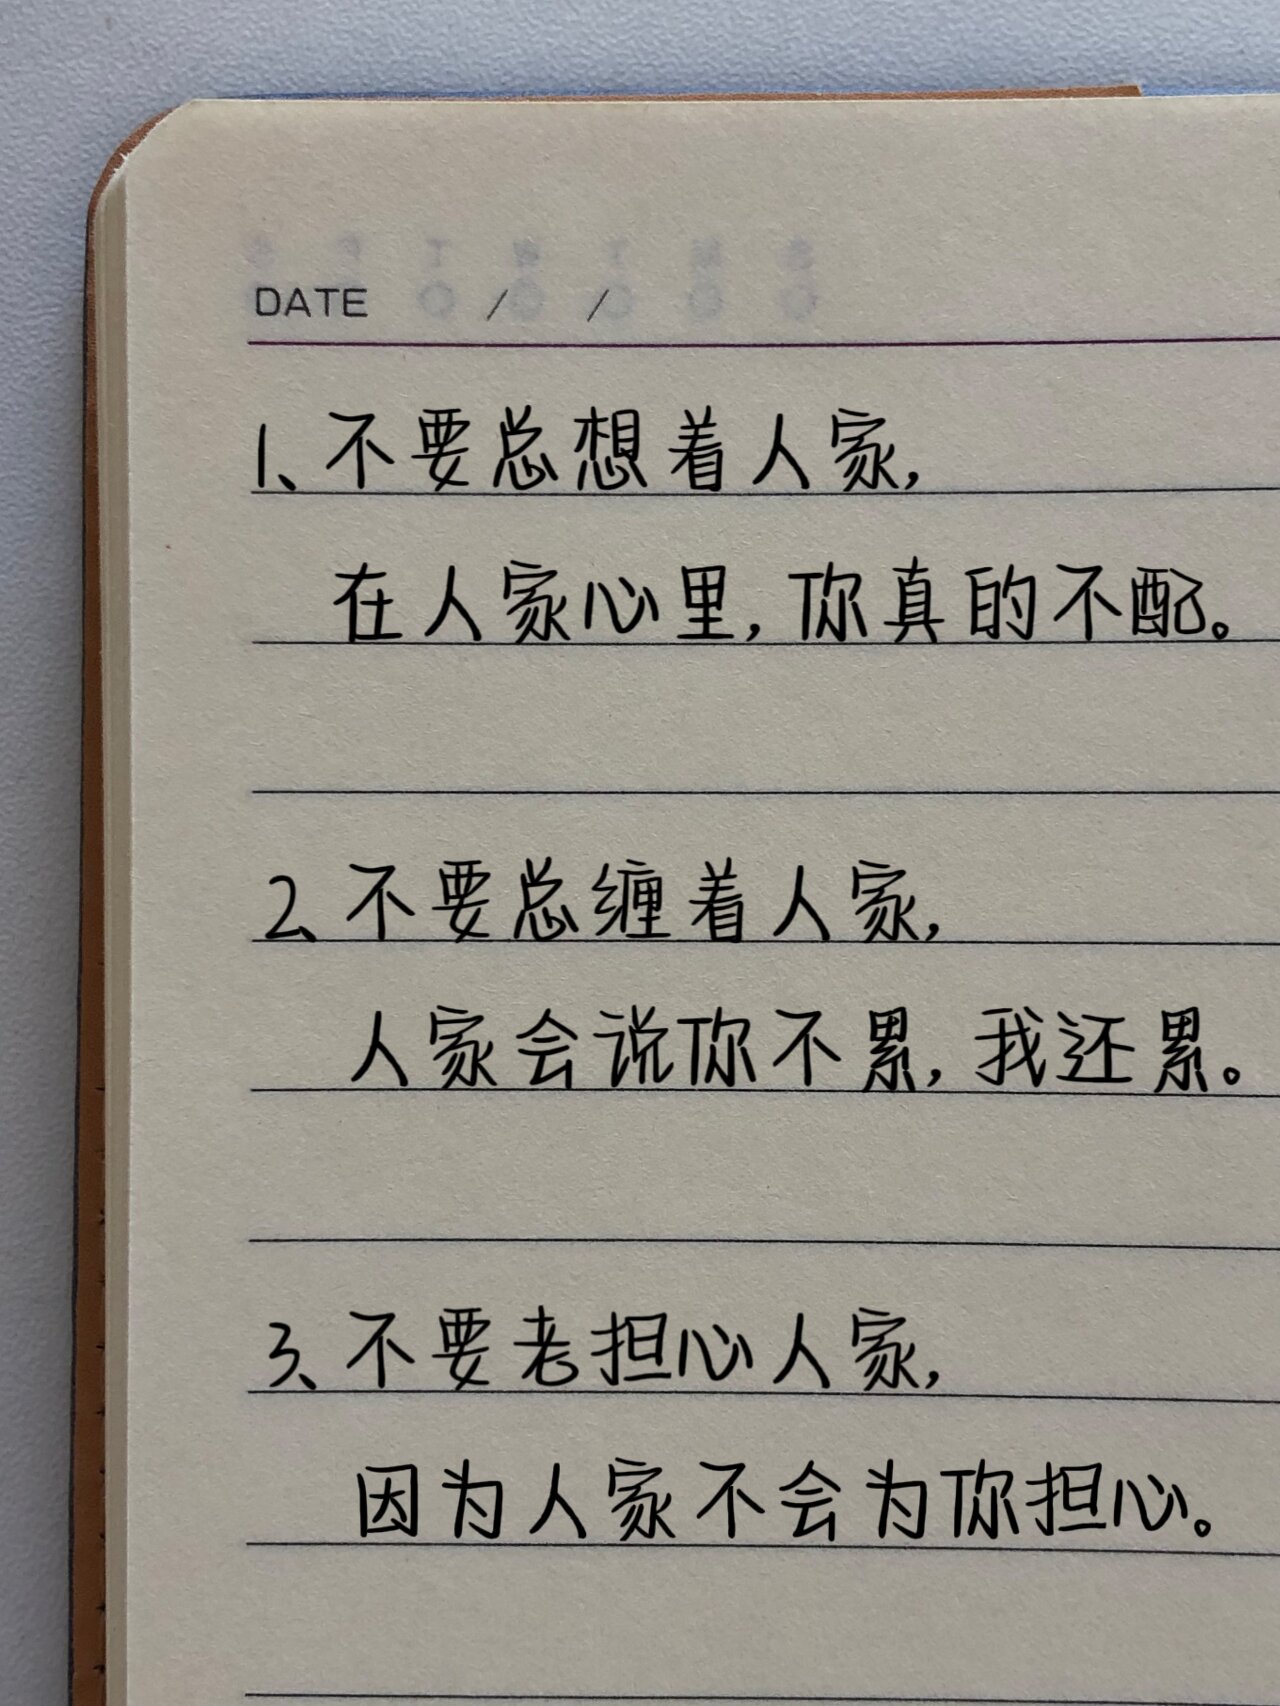 DATE / /
1、不要总想着人家,
在人家心里,你真的不配。
2、不要总缠着人家,
人家会说你不累,我还累。
3、不要老担心人家,
因为人家不会为你担心。